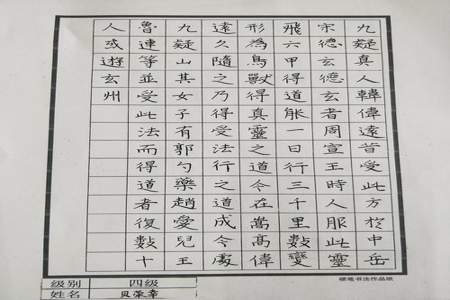 九疑真人韓偉遠昔受此方於中岳
宋德玄德玄者周宣王時人服此靈
飛六甲得道能一日行三千里數變
形為鳥獸得真靈之道今在嵩高偉
遠久隨之乃得受法行之道成今處
九疑山其女子有郭勺藥趙愛兒王
魯連等並受此法而得道者復數十
人或遊玄州
硬笔书法作品纸
级别 四级
姓名